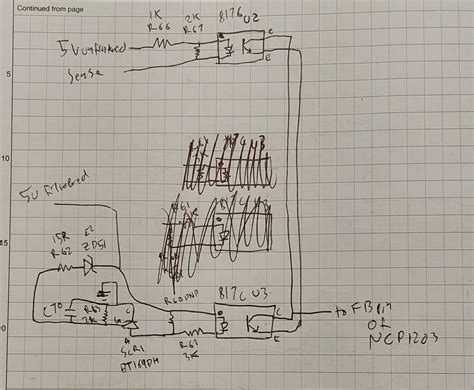 Continued from page
1K
R66
2K
R67
817C U2
5V unfiltered
C
E
Sense
5
10
5V filtered
15
15R
R62
ZD51
R60 DNP
817C U3
C70
R63
2K
C
to FB pin
of
NCP1203
SCR1
BT169DH
R61
3K
E